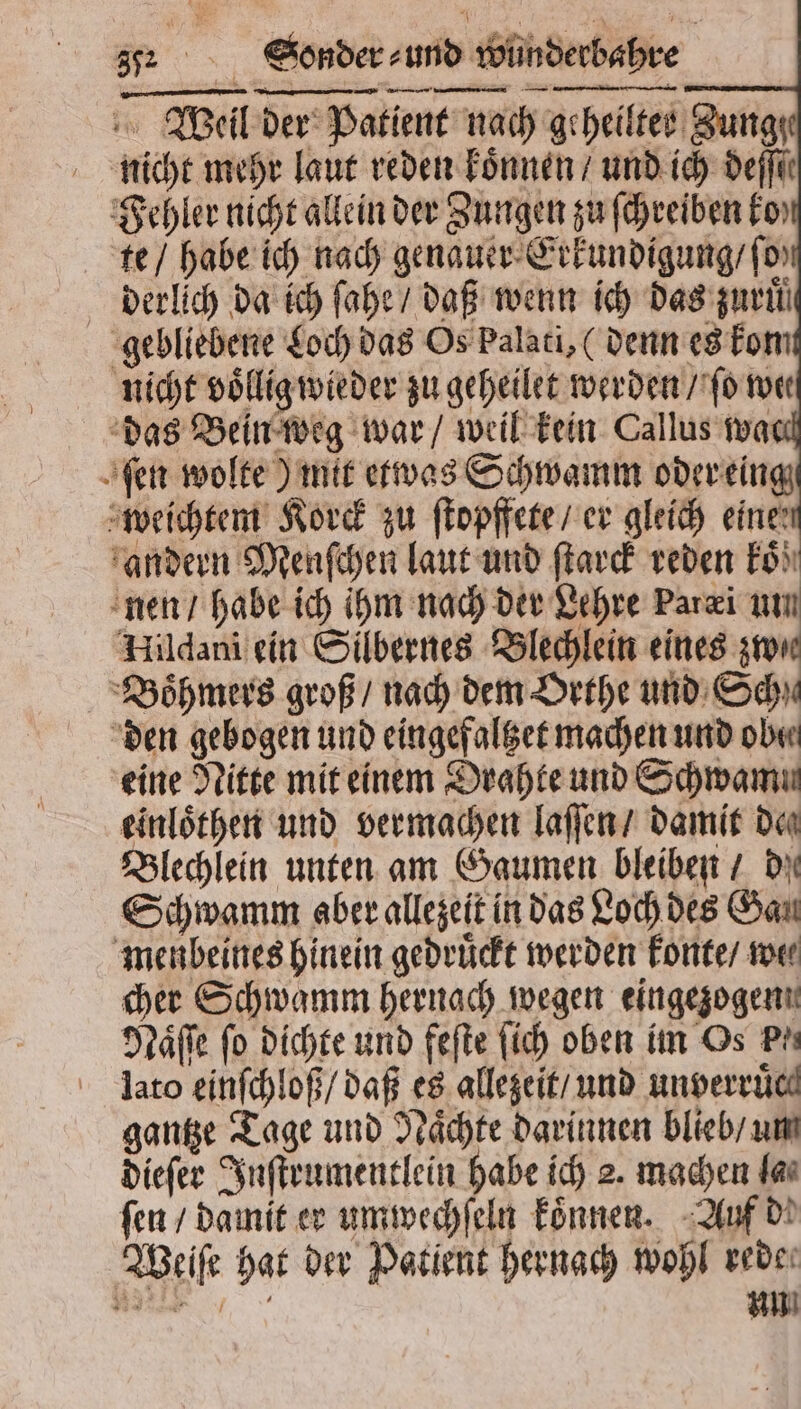 352 Sonder⸗und wunderbahre
Weil der Patient nach geheilter Zunge
nicht mehr laut reden koͤnnen / und ich deſſe
Fehler nicht allein der Zungen zu ſchreiben kon
te / habe ich nach genauer Erkundigung / ſon
derlich da ich ſahe / daß wenn ich das zuruͤ
gebliebene Loch das Os Palati, ( denn es kom
nicht voͤllig wieder zu geheilet werden / ſo we
das Bein weg war / weil kein Callus wac
ſen wolte ) mit etwas Schwamm oder einge
weichtem Korck zu ſtopffete / er gleich einen
andern Menſchen laut und ſtarck reden koͤn
nen / habe ich ihm nach der Lehre Paræi un
Hildani ein Silbernes Blechlein eines zwe
Boͤhmers groß / nach dem Orthe und Scha
den gebogen und eingefaltzet machen und obe
eine Nitte mit einem Drahte und Schwam
einloͤthen und vermachen laſſen / damit da
Blechlein unten am Gaumen bleiben / de
Schwamm aber allezeit in das Loch des Gau
menbeines hinein gedruͤckt werden konte / wel
cher Schwamm hernach wegen eingezogene
Naͤſſe ſo dichte und feſte ſich oben im Os Pa
lato einſchloß / daß es allezeit / und unverruͤc
gantze Tage und Naͤchte darinnen blieb / un
dieſer Inſtrumentlein habe ich 2. machen laſ
ſen / damit er umwechſeln koͤnnen. Auf di
Weiſe hat der Patient hernach wohl rede
un